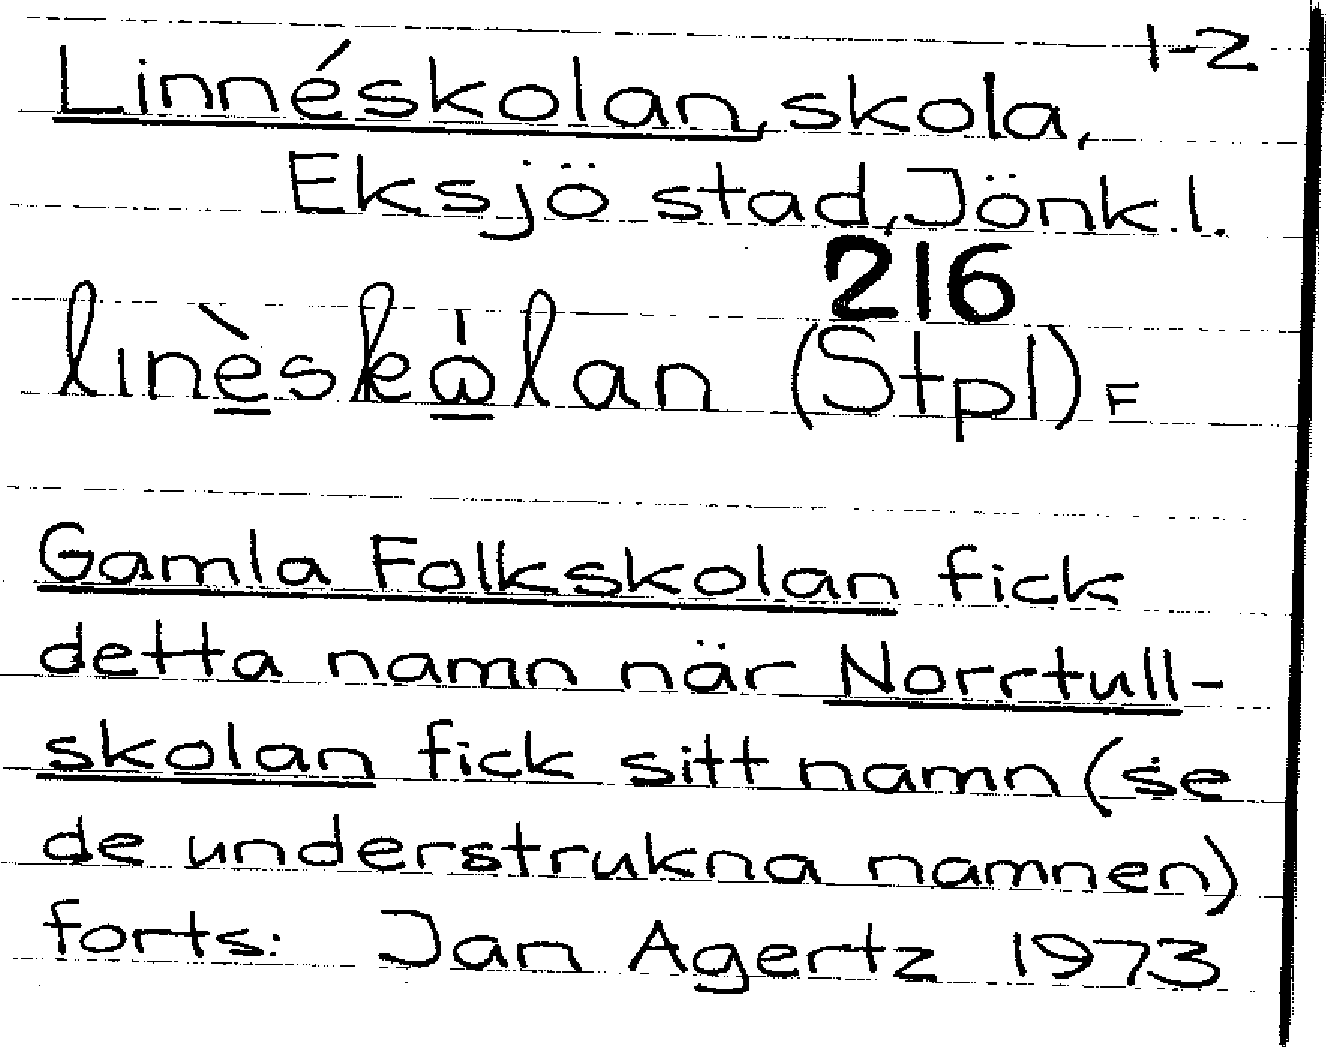 1-2
Linnéskolan, skola,
Eksjö stad, Jönk.l.
216
linèskålan (Stpl) F
Gamla Folkskolan fick
detta namn när Norrtull-
skolan fick sitt namn (se
de understrukna namnen)
forts: Jan Agertz 1973